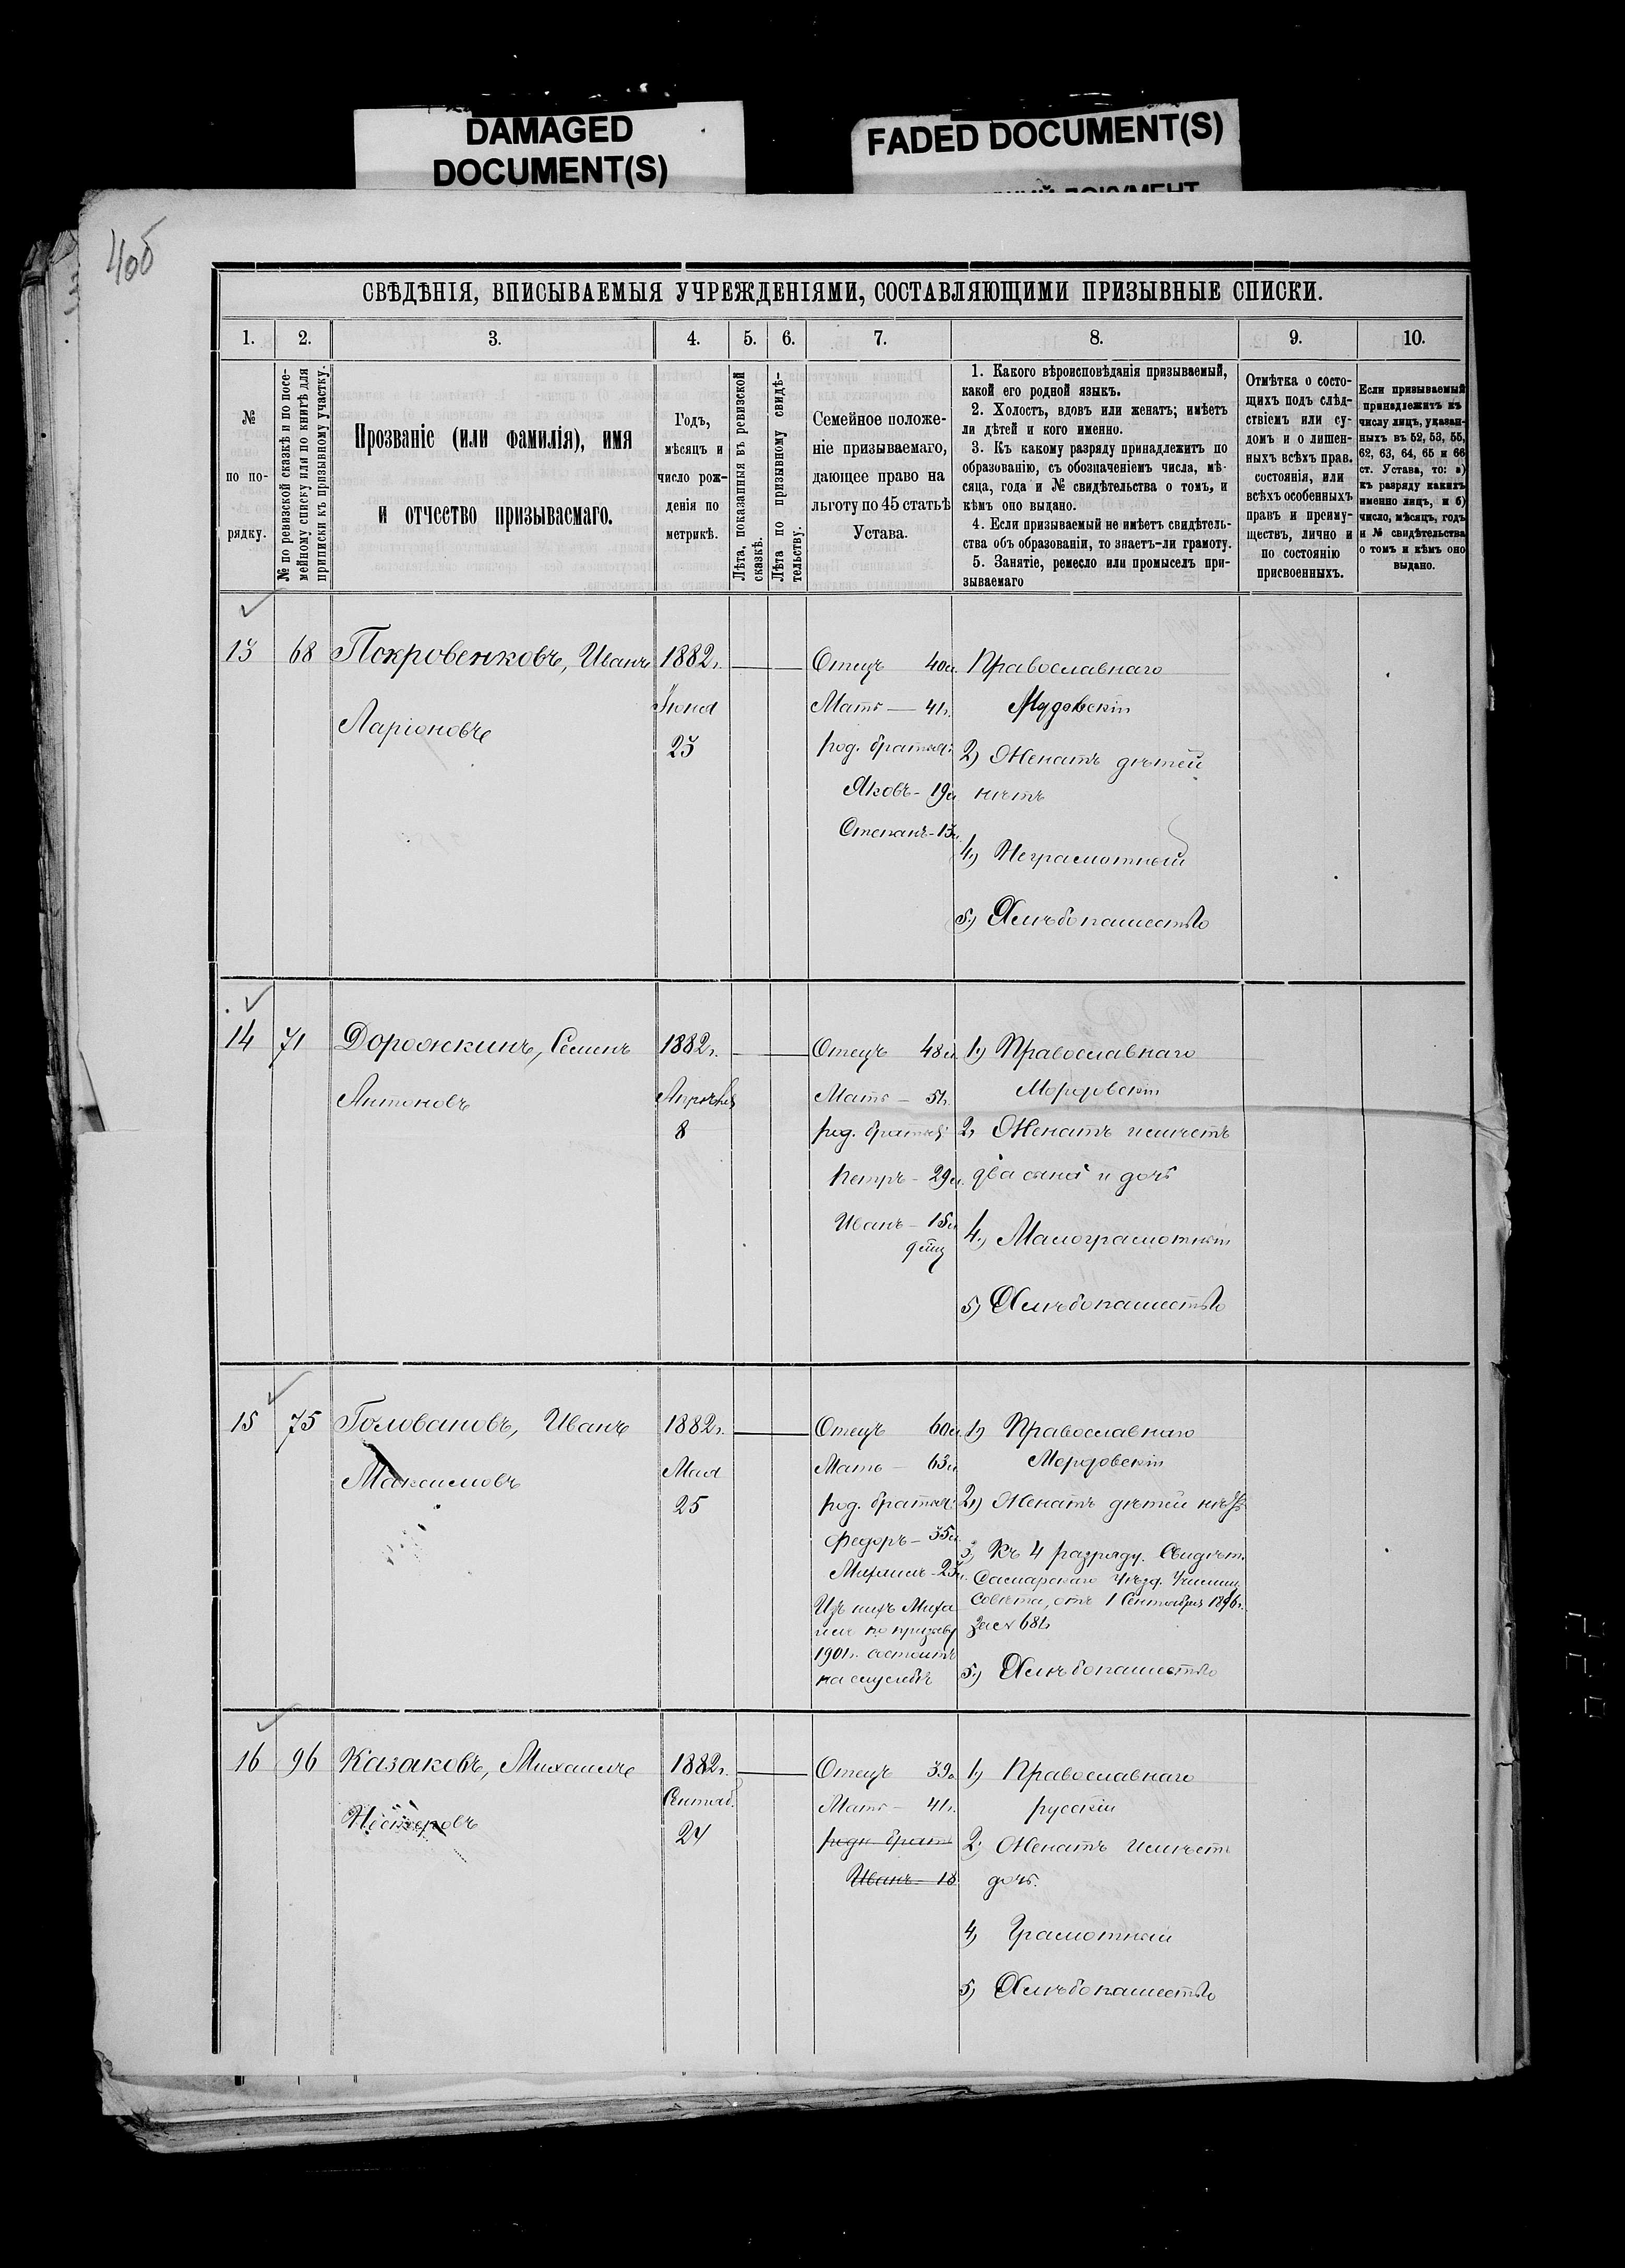 DAMAGED
DOCUMENT(S)
FADED DOCUMENT(S)
406
СВѢДѢНІЯ, ВПИСЫВАЕМЫЯ УЧРЕЖДЕНІЯМИ, СОСТАВЛЯЮЩИМИ ПРИЗЫВНЫЕ СПИСКИ.
1. 2. 3. 4. 5. 6. 7. 8. 9. 10.
№
по по-
рядку.
№ по ревизской сказкѣ и по посе-
мейному списку или по книгѣ для
приписки къ призывному участку.
Прозваніе (или фамилія), имя
и отчество призываемаго.
Годъ,
мѣсяцъ и
число рож-
денія по
метрикѣ.
Лѣта, показанныя въ ревизской
сказкѣ.
Лѣта по призывному свидѣ-
тельству.
Семейное положе-
ніе призываемаго,
дающее право на
льготу по 45 статьѣ
Устава.
1. Какого вѣроисповѣданія призываемый,
какой его родной языкъ.
2. Холостъ, вдовъ или женатъ; имѣетъ
ли дѣтей и кого именно.
3. Къ какому разряду принадлежитъ по
образованію, съ обозначеніемъ числа, мѣ-
сяца, года и № свидѣтельства о томъ, и
кѣмъ оно выдано.
4. Если призываемый не имѣетъ свидѣтель-
ства объ образованіи, то знаетъ-ли грамоту.
5. Занятіе, ремесло или промыселъ при-
зываемаго
Отмѣтка о состо-
щихъ подъ слѣд-
ствіемъ или су-
домъ и о лишен-
ныхъ всѣхъ прав.
состоянія, или
всѣхъ особенныхъ
правъ и преиму-
ществъ, лично и
по состоянію
присвоенныхъ.
Если призываемый
принадлежитъ къ
числу лицъ, указан-
ныхъ въ 52, 53, 55,
62, 63, 64, 65 и 66
ст. Устава, то: а)
къ разряду какихъ
именно лицъ, и б)
число, мѣсяцъ, годъ
и № свидѣтельства
о томъ и кѣмъ оно
выдано.
13 68 Покровенковъ, Иванъ
Ларіоновъ
1882г.
Іюня
23
Отецъ 40л.
Мать — 41г.
род. братья:
Яковъ - 19л
Степанъ - 13л.
Православнаго
2) Женатъ дѣтей
нѣтъ
4) Неграмотный
5) Хлѣбопашество
14 71 Дорожкинъ, Семенъ
Антоновъ
1882г.
Апрѣля
8
Отецъ 48л.
Мать — 51г.
род. братья:
Петръ - 29л.
Иванъ - 15л
1) Православнаго
Мордовскій
2) Женатъ имѣетъ
два сына и дочь
4) Малограмотный
5) Хлѣбопашество
15 75 Головановъ, Иванъ
Максимовъ
1882г.
Мая
25
Отецъ 60л.
Мать — 63л
род. братья:
Федоръ — 35л.
Михаилъ - 23л.
Изъ нихъ Миха
илъ по призыву
1901г. состоитъ
на службѣ
1) Православнаго
Мордовскій
2) Женатъ дѣтей нѣтъ
3) Къ 4 разряду. Свидѣт.
Самарскаго Уѣзд. Училищ.
Совѣта, отъ 1 Сентября 1896г.
за № 681
5) Хлѣбопашество
16 96 Казаковъ, Михаилъ
Нестеровъ
1882г.
Сентяб.
24
Отецъ 39л.
Мать — 41г.
родн. братъ
Иванъ - 18
1) Православнаго
русскій
2) Женатъ имѣетъ
дочь.
4) Грамотный
5) Хлѣбопашество